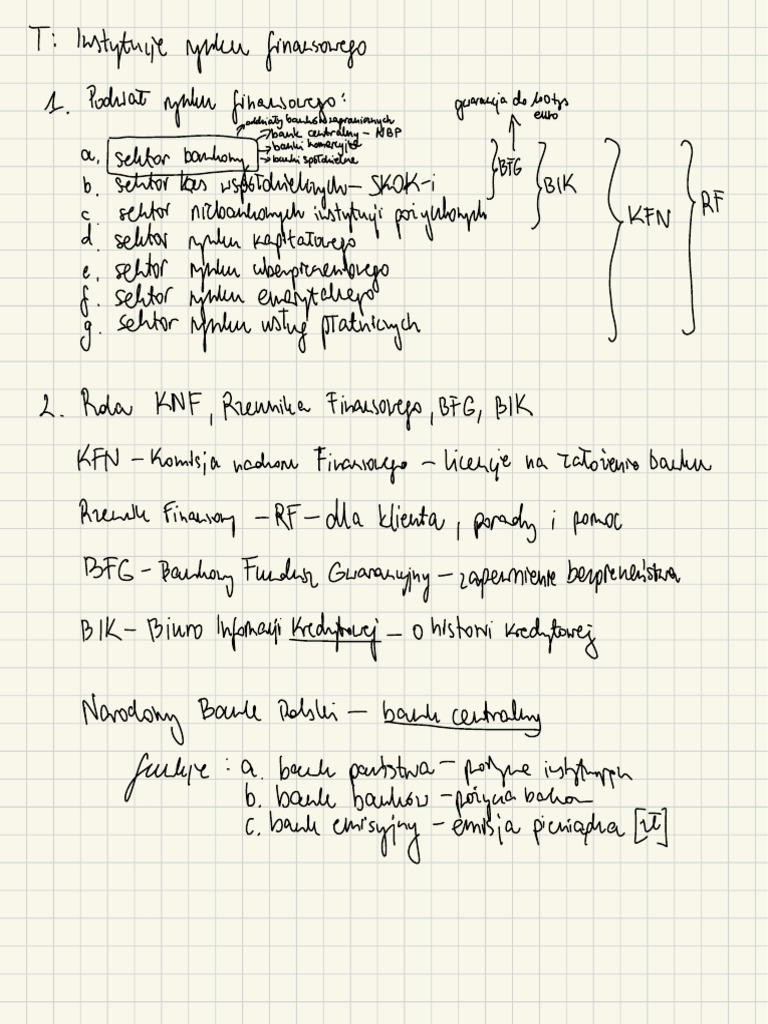 T: Instytucje rynku finansowego
1. Podział rynku finansowego:
gwarancja do 100tys
euro
oddziały banków zagranicznych
bank centralny – NBP
banki komercyjne
banki spółdzielne
a. sektor bankowy
b. sektor kas współdzielczych – SKOK-i
c. sektor niebankowych instytucji pożyczkowych
d. sektor rynku kapitałowego
e. sektor rynku ubezpieczeniowego
f. sektor rynku emerytalnego
g. sektor rynku usług płatniczych
BFG
BIK
KFN
RF
2. Rola KNF, Rzecznika Finansowego, BFG, BIK
KFN – Komisja nadzoru Finansowego – licencje na założenie banku
Rzecznik Finansowy – RF – dla klienta, porady i pomoc
BFG – Bankowy Fundusz Gwarancyjny – zapewnienie bezpieczeństwa
BIK – Biuro Informacji Kredytowej – o historii kredytowej
Narodowy Bank Polski – bank centralny
funkcje: a. bank państwa – instytucjom
b. bank banków – pożycza bankom
c. bank emisyjny – emisja pieniądza [zł]